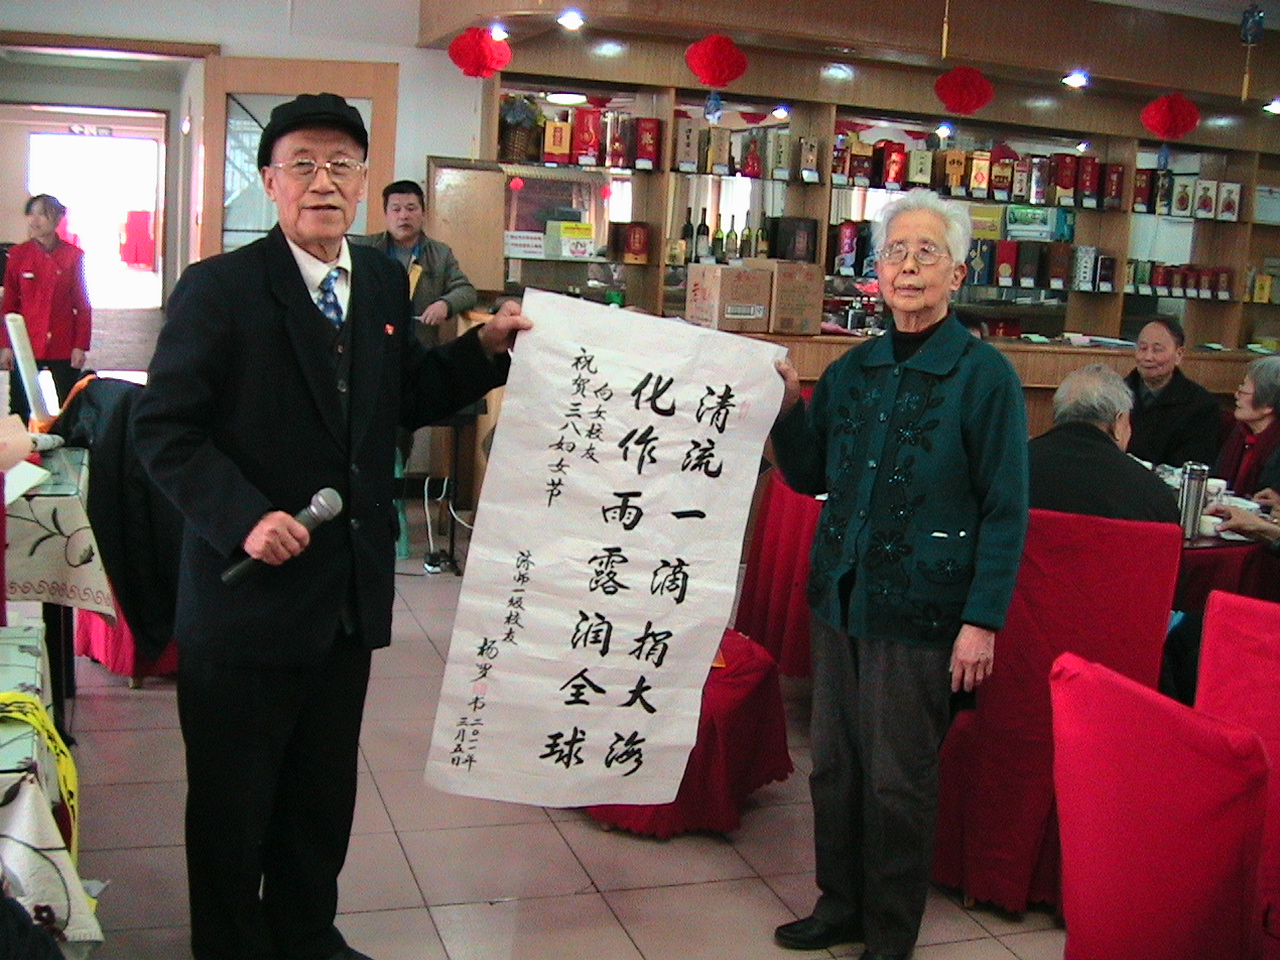 清流一滴捐大海
化作雨露润全球
向女校友
祝贺三八妇女节
济师一级校友
杨罗书
二〇一一年
三月五日